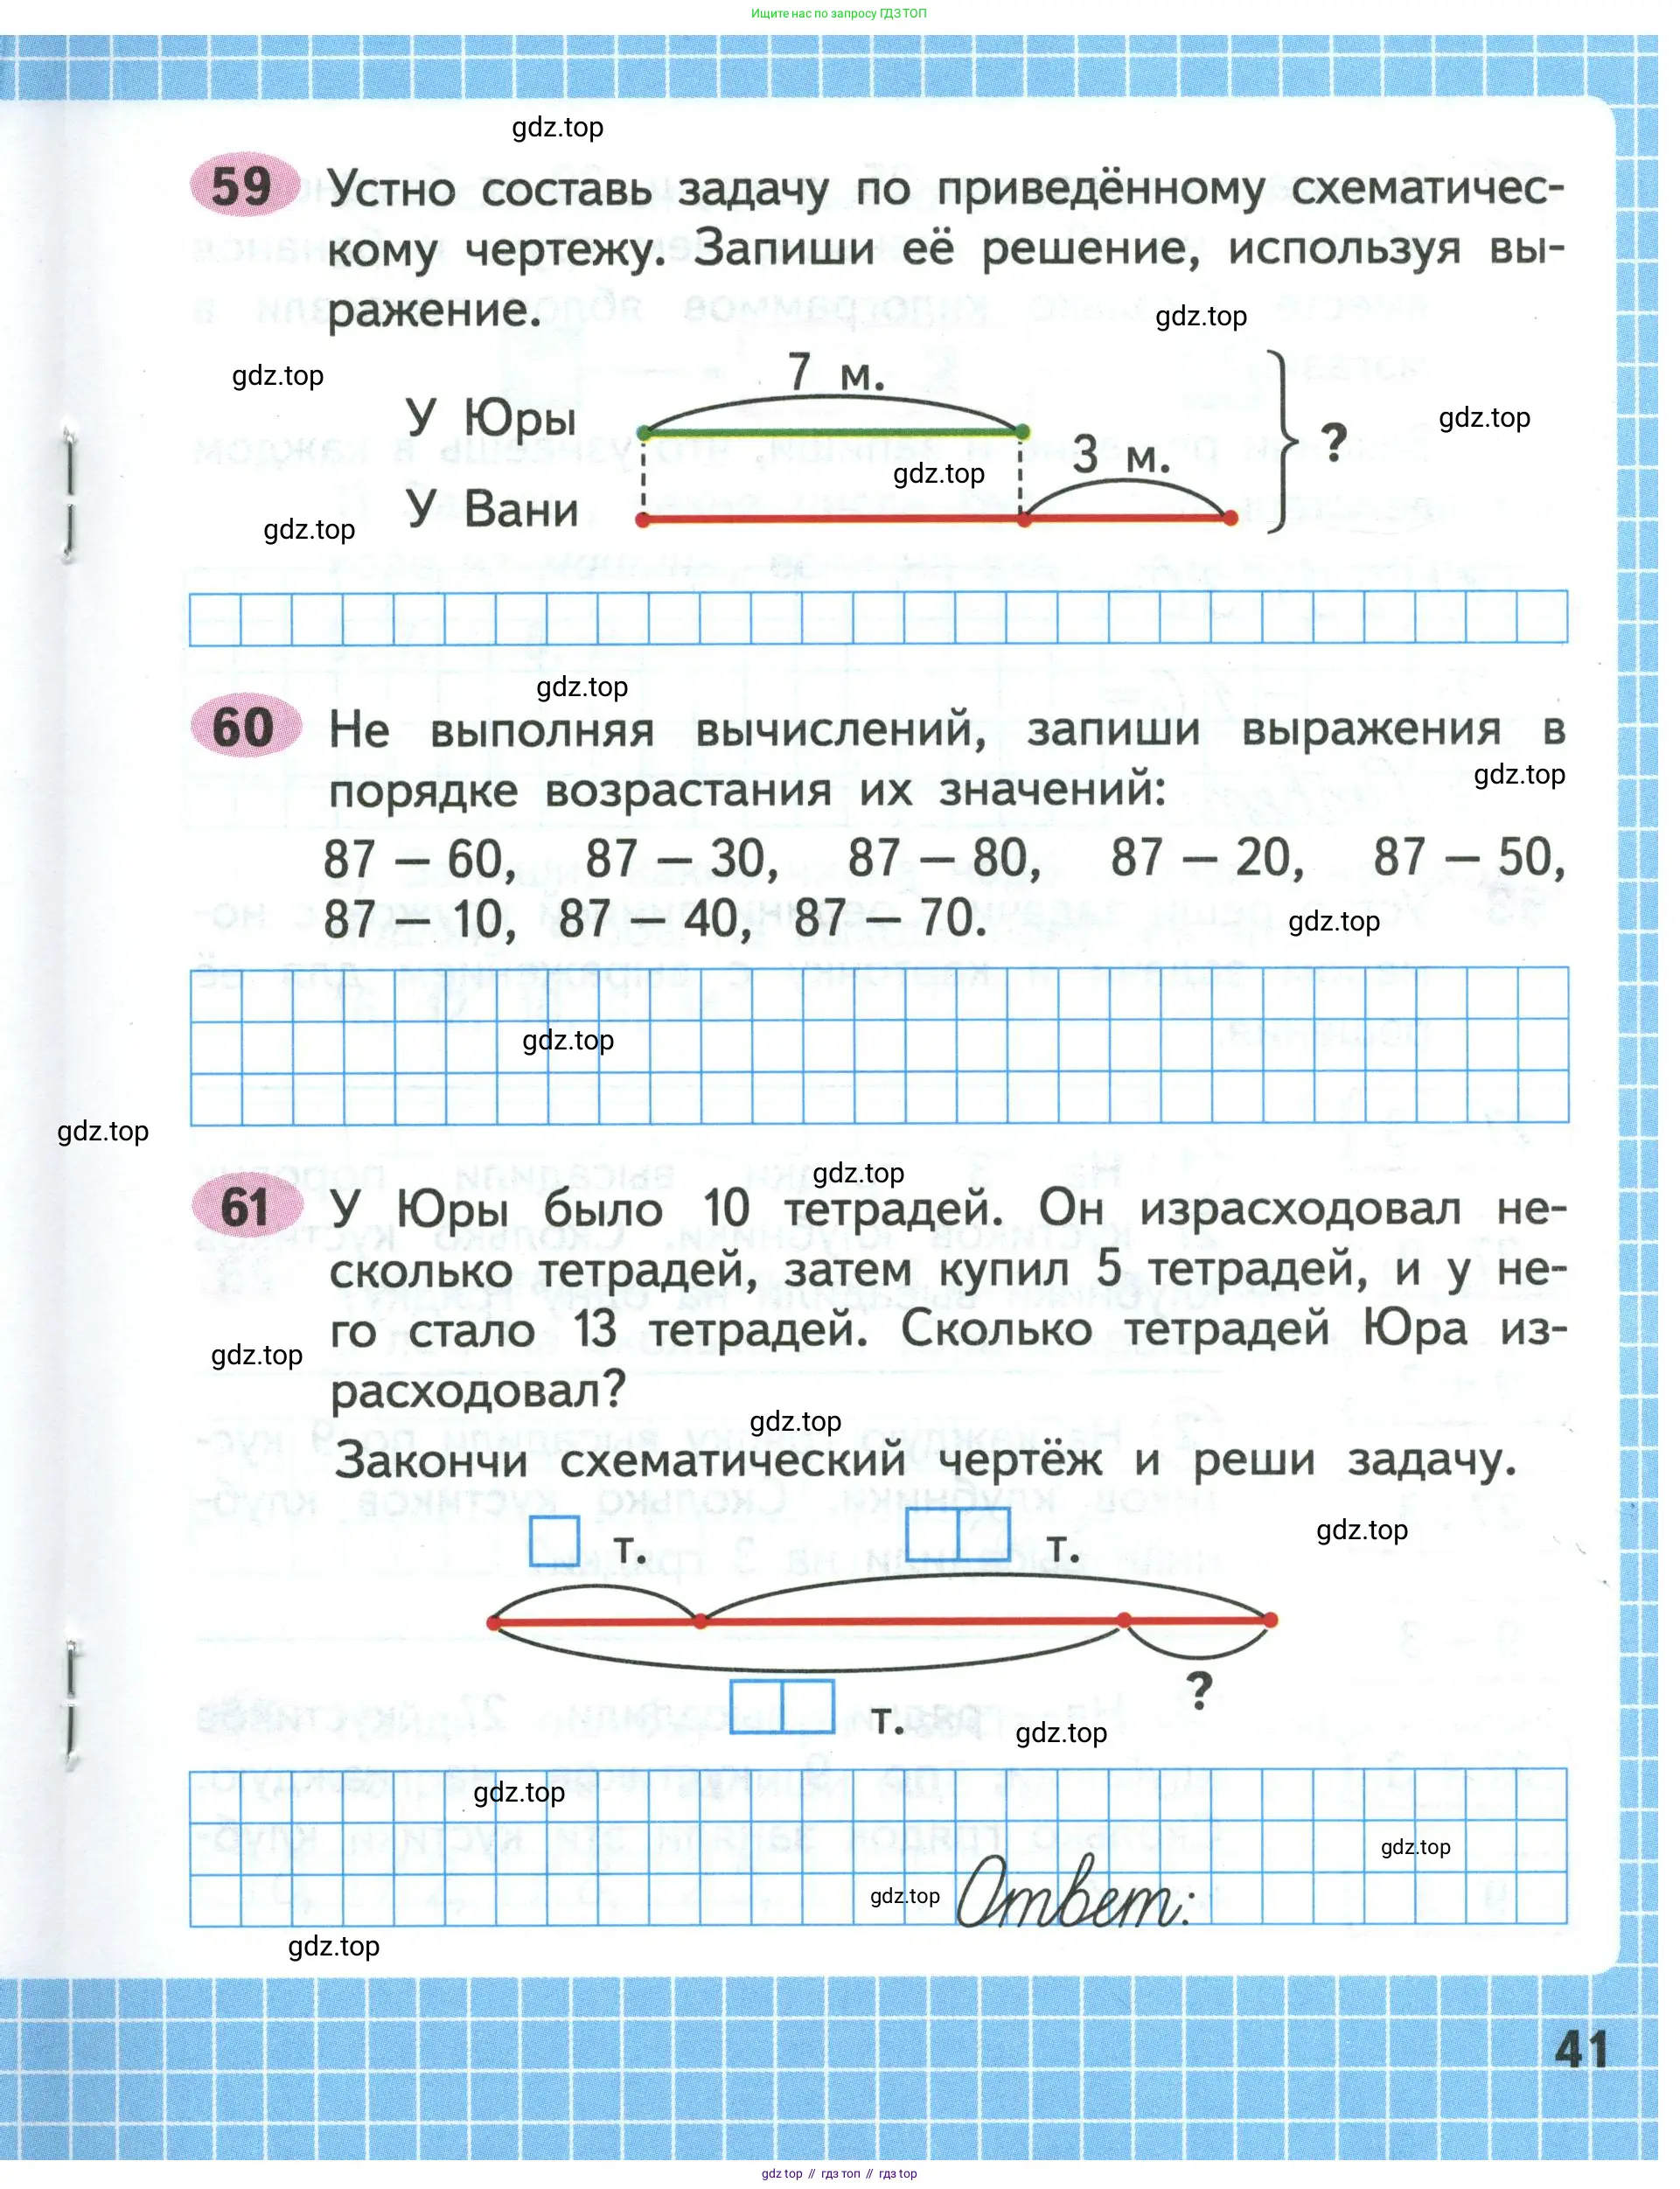 Ищите нас по запросу ГДЗ ТОП
gdz.top
59 Устно составь задачу по приведённому схематичес-
кому чертежу. Запиши её решение, используя вы-
ражение.
gdz.top
gdz.top
7 м.
У Юры
gdz.top
?
3 м.
gdz.top
У Вани
gdz.top
gdz.top
60 Не выполняя вычислений, запиши выражения в
порядке возрастания их значений:
gdz.top
87 – 60, 87 – 30, 87 – 80, 87 – 20, 87 – 50,
87 – 10, 87 – 40, 87 – 70.
gdz.top
gdz.top
gdz.top
gdz.top
61 У Юры было 10 тетрадей. Он израсходовал не-
сколько тетрадей, затем купил 5 тетрадей, и у не-
го стало 13 тетрадей. Сколько тетрадей Юра из-
gdz.top
расходовал?
gdz.top
Закончи схематический чертёж и реши задачу.
gdz.top
т. т.
?
т.
gdz.top
gdz.top
gdz.top
gdz.top
Ответ:
gdz.top
41
gdz top // гдз топ // гдз top